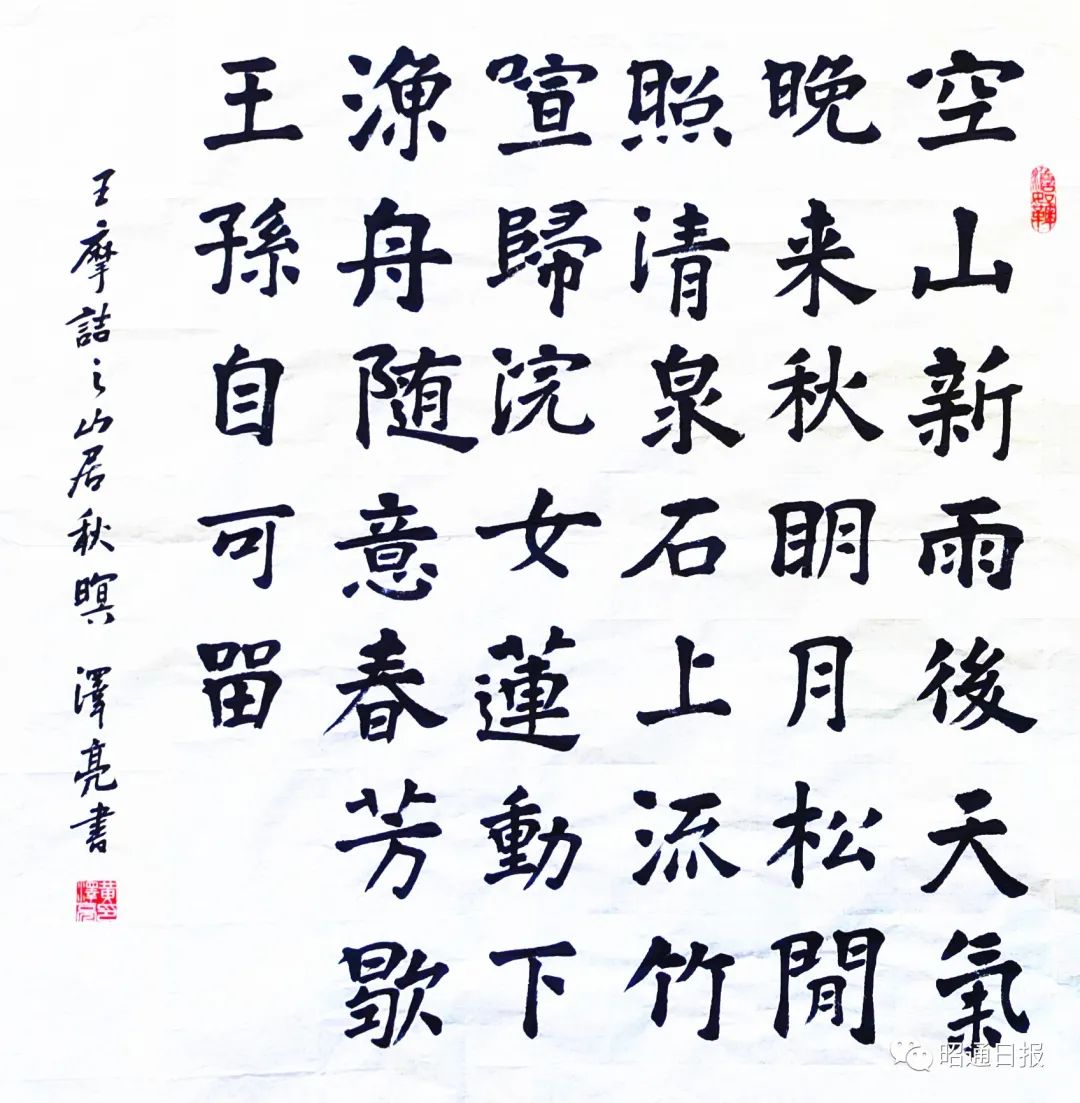 空山新雨後天氣
晚来秋明月松閒
照清泉石上流竹
喧歸浣女蓮動下
漁舟随意春芳歇
王孫自可留
王摩詰之山居秋暝 澤亮書
昭通日报